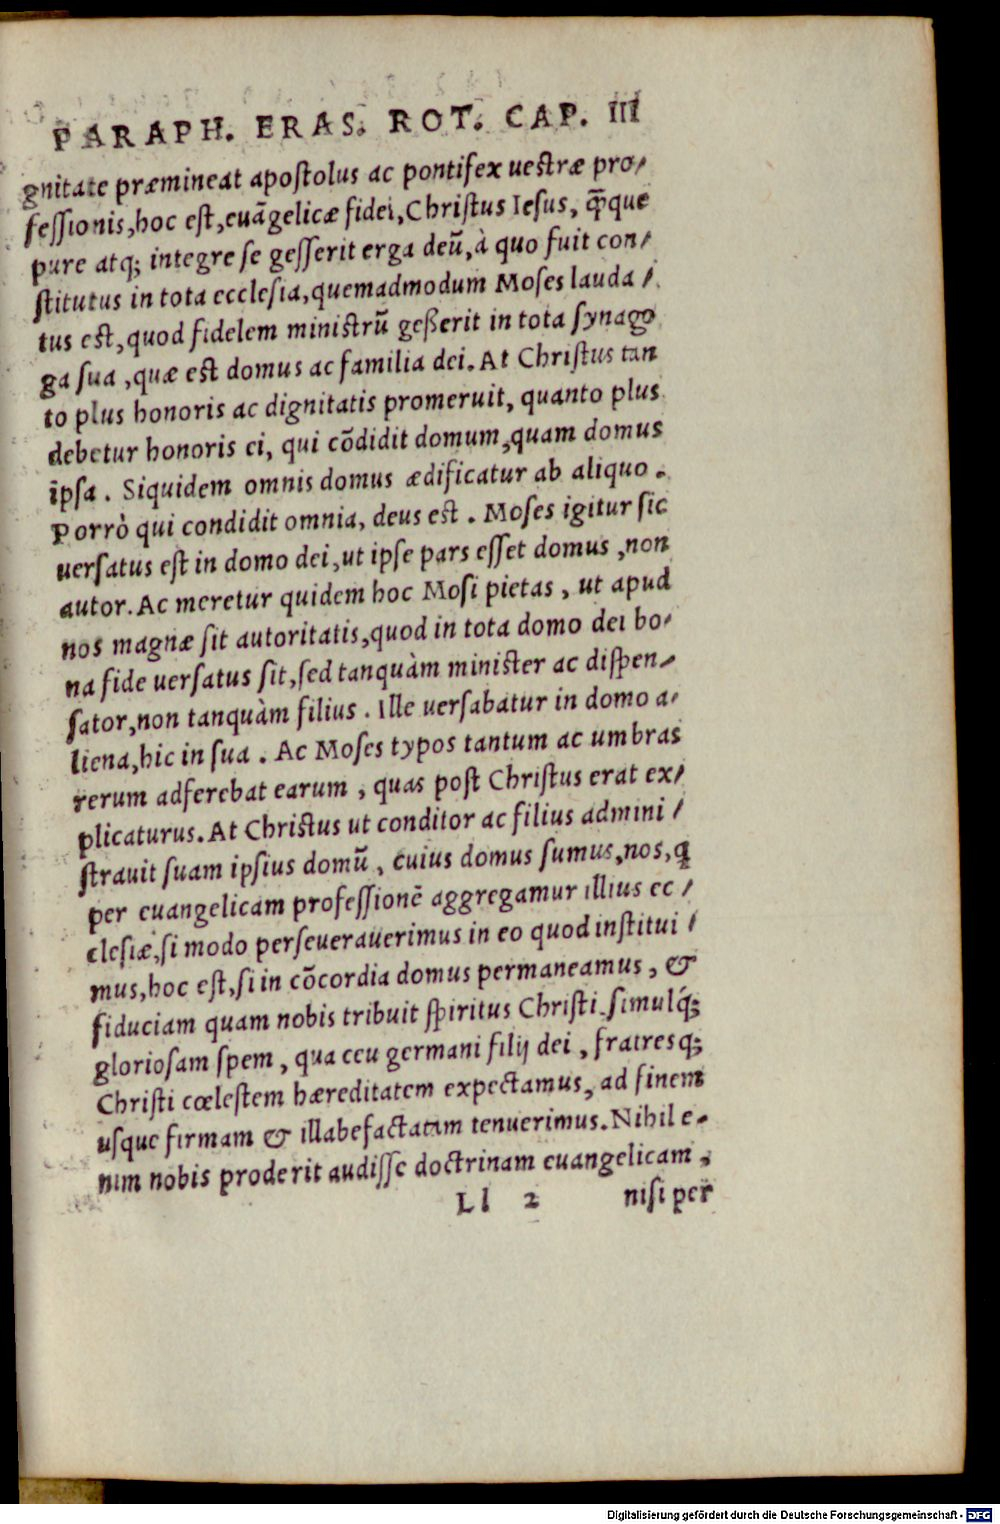 PARAPH. ERAS. ROT. CAP. III
gnitate præmineat apostolus ac pontifex uestræ pro/
fessionis, hoc est, euãgelicæ fidei, Christus Iesus, q̃que
pure atq; integre se gesserit erga deũ, à quo fuit con/
stitutus in tota ecclesia, quemadmodum Moses lauda/
tus est, quod fidelem ministrũ geßerit in tota synago
ga sua, quæ est domus ac familia dei. At Christus tan
to plus honoris ac dignitatis promeruit, quanto plus
debetur honoris ei, qui cõdidit domum, quam domus
ipsa. Siquidem omnis domus ædificatur ab aliquo.
Porrò qui condidit omnia, deus est. Moses igitur sic
uersatus est in domo dei, ut ipse pars esset domus, non
autor. Ac meretur quidem hoc Mosi pietas, ut apud
nos magnæ sit autoritatis, quod in tota domo dei bo/
na fide uersatus sit, sed tanquàm minister ac dispen/
sator, non tanquàm filius. Ille uersabatur in domo a/
liena, hic in sua. Ac Moses typos tantum ac umbras
rerum adferebat earum, quas post Christus erat ex/
plicaturus. At Christus ut conditor ac filius admini/
strauit suam ipsius domũ, cuius domus sumus, nos, q
per euangelicam professionẽ aggregamur illius ec/
clesiæ, si modo perseuerauerimus in eo quod institui/
mus, hoc est, si in cõcordia domus permaneamus, &
fiduciam quam nobis tribuit spiritus Christi simulq́;
gloriosam spem, qua ceu germani filij dei, fratresq;
Christi cœlestem hæreditatem expectamus, ad finem
usque firmam & illabefactatam tenuerimus. Nihil e/
nim nobis proderit audisse doctrinam euangelicam,
Ll 2 nisi per
Digitalisierung gefördert durch die Deutsche Forschungsgemeinschaft - DFG